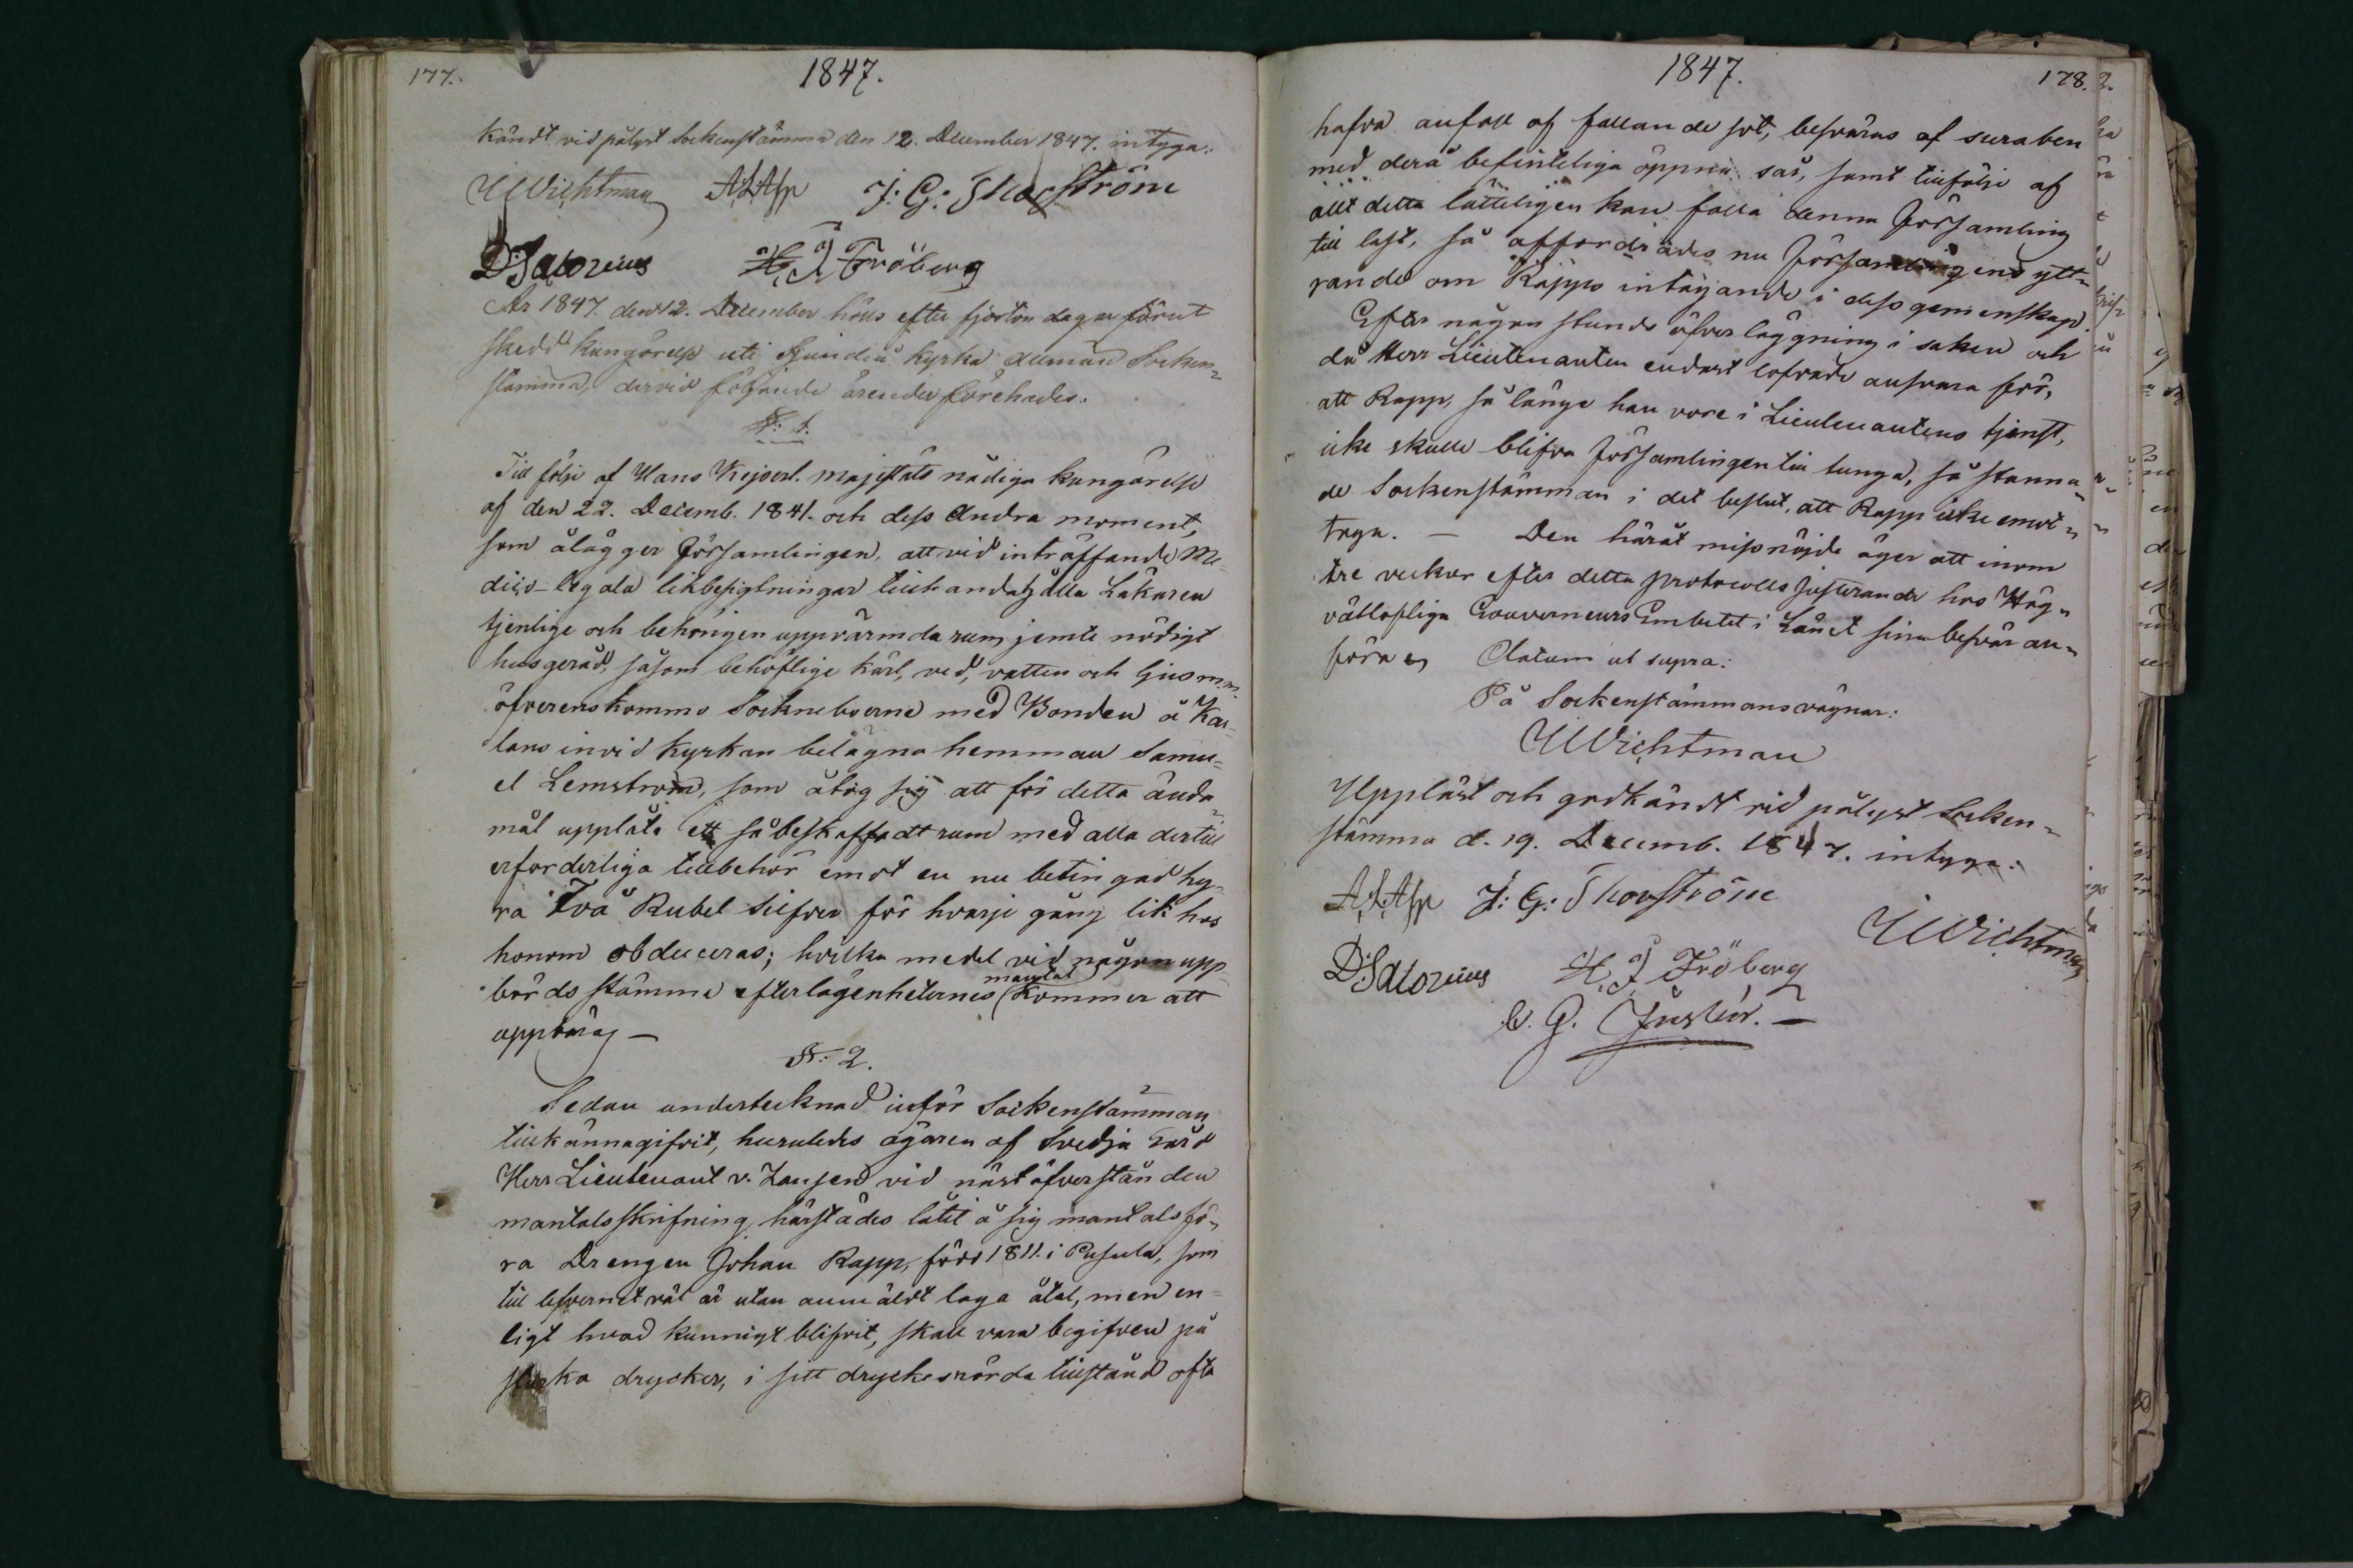 177.
1847.
kändt vid pålyst Sockenstämma den 12. December 1847. intyga:
UWichtman ALAsp J: G: Skogström
D:Salorius H, J Fröberg
År 1847. den 12. December hölls efter fjorton dagar förut
skedd kungörelse uti Sjundeå kyrka allmän Socken-
stämma, dervid följande ärender förehades.
§: 1.
Till följe af Hans Kejserl. Majestäts nådiga kungörelse
af den 22. Decemb. 1841. och dess andra moment,
som ålägger Församlingen, att vid inträffande Me-
dico-legala likbesigtningar tillhandahålla Läkaren
tjenlige och behörigen uppvärmda rum jemte nödigt
husgeråd, såsom behöflige kärl, ved, vatten och ljus m.m.
öfverenskommo Socknebоerne med Bonden å Kar-
lans invid Kyrkan belägna hemman Samu-
el Lemström, som åtog sig att för detta ända-
mål upplåta ett så beskaffadt rum med alla dertill
erforderliga tillbehör emot en nu betingad hy-
ra Två Rubel Silfver för hvarje gång lik hos
honom obduceras; hvilka medel vid någon upp-
bördsstämma efter lägenheternes mantal kommer att
uppbäras —
§: 2.
Sedan undertecknad inför Sockenstämman
tillkännagifvit, huruledes ägaren af Svedja Gård
Herr Lieutenant v. Zansen vid nästöfverstånden
mantalsskrifning härstädes låtit å sig mantalsfö-
ra Drengen Johan Rapp, född 1811. i Pusula, som
till lefvernet väl är utan anmäldt laga åtal, men en-
ligt hvad kunnigt blifvit, skall vara begifven på
starka drycker, i sitt dryckesrörda tillstånd ofta
1847.
178.
hafva anfall af fallande sot, besväras af suraben
med derå befinteliga öppna sår, samt tillfölje af
allt detta lätteligen kan falla denna Församling
till last, så affordrades nu Församlingens ytt-
rande om Rapps intagande i dess gemenskap.
Efter någon stunds öfverläggning i saken och
då Herr Lieutenanten endast lofvade ansvara för,
att Rapp, så länge han vore i Lieutenantens tjenst,
icke skulle blifva Församlingen till tunga, så stanna-
de Sockenstämman i det beslut, att Rapp icke emot-
tages. — Den häråt missnöjde äger att inom
tre veckor efter detta protocolls justerande hos Hög-
vällofliga Gouverneurs Embetet i Länet sina besvär an-
föra Datum ut supra:
På Sockenstämmans vägnar:
UWichtman
Uppläst och godkändt vid pålyst Socken-
stämma d. 19. Decemb. 1847. intyga:
ALAsp J: G: Skogström
UWichtman
D:Salorius H, J Fröberg
C. G. Juslén. —